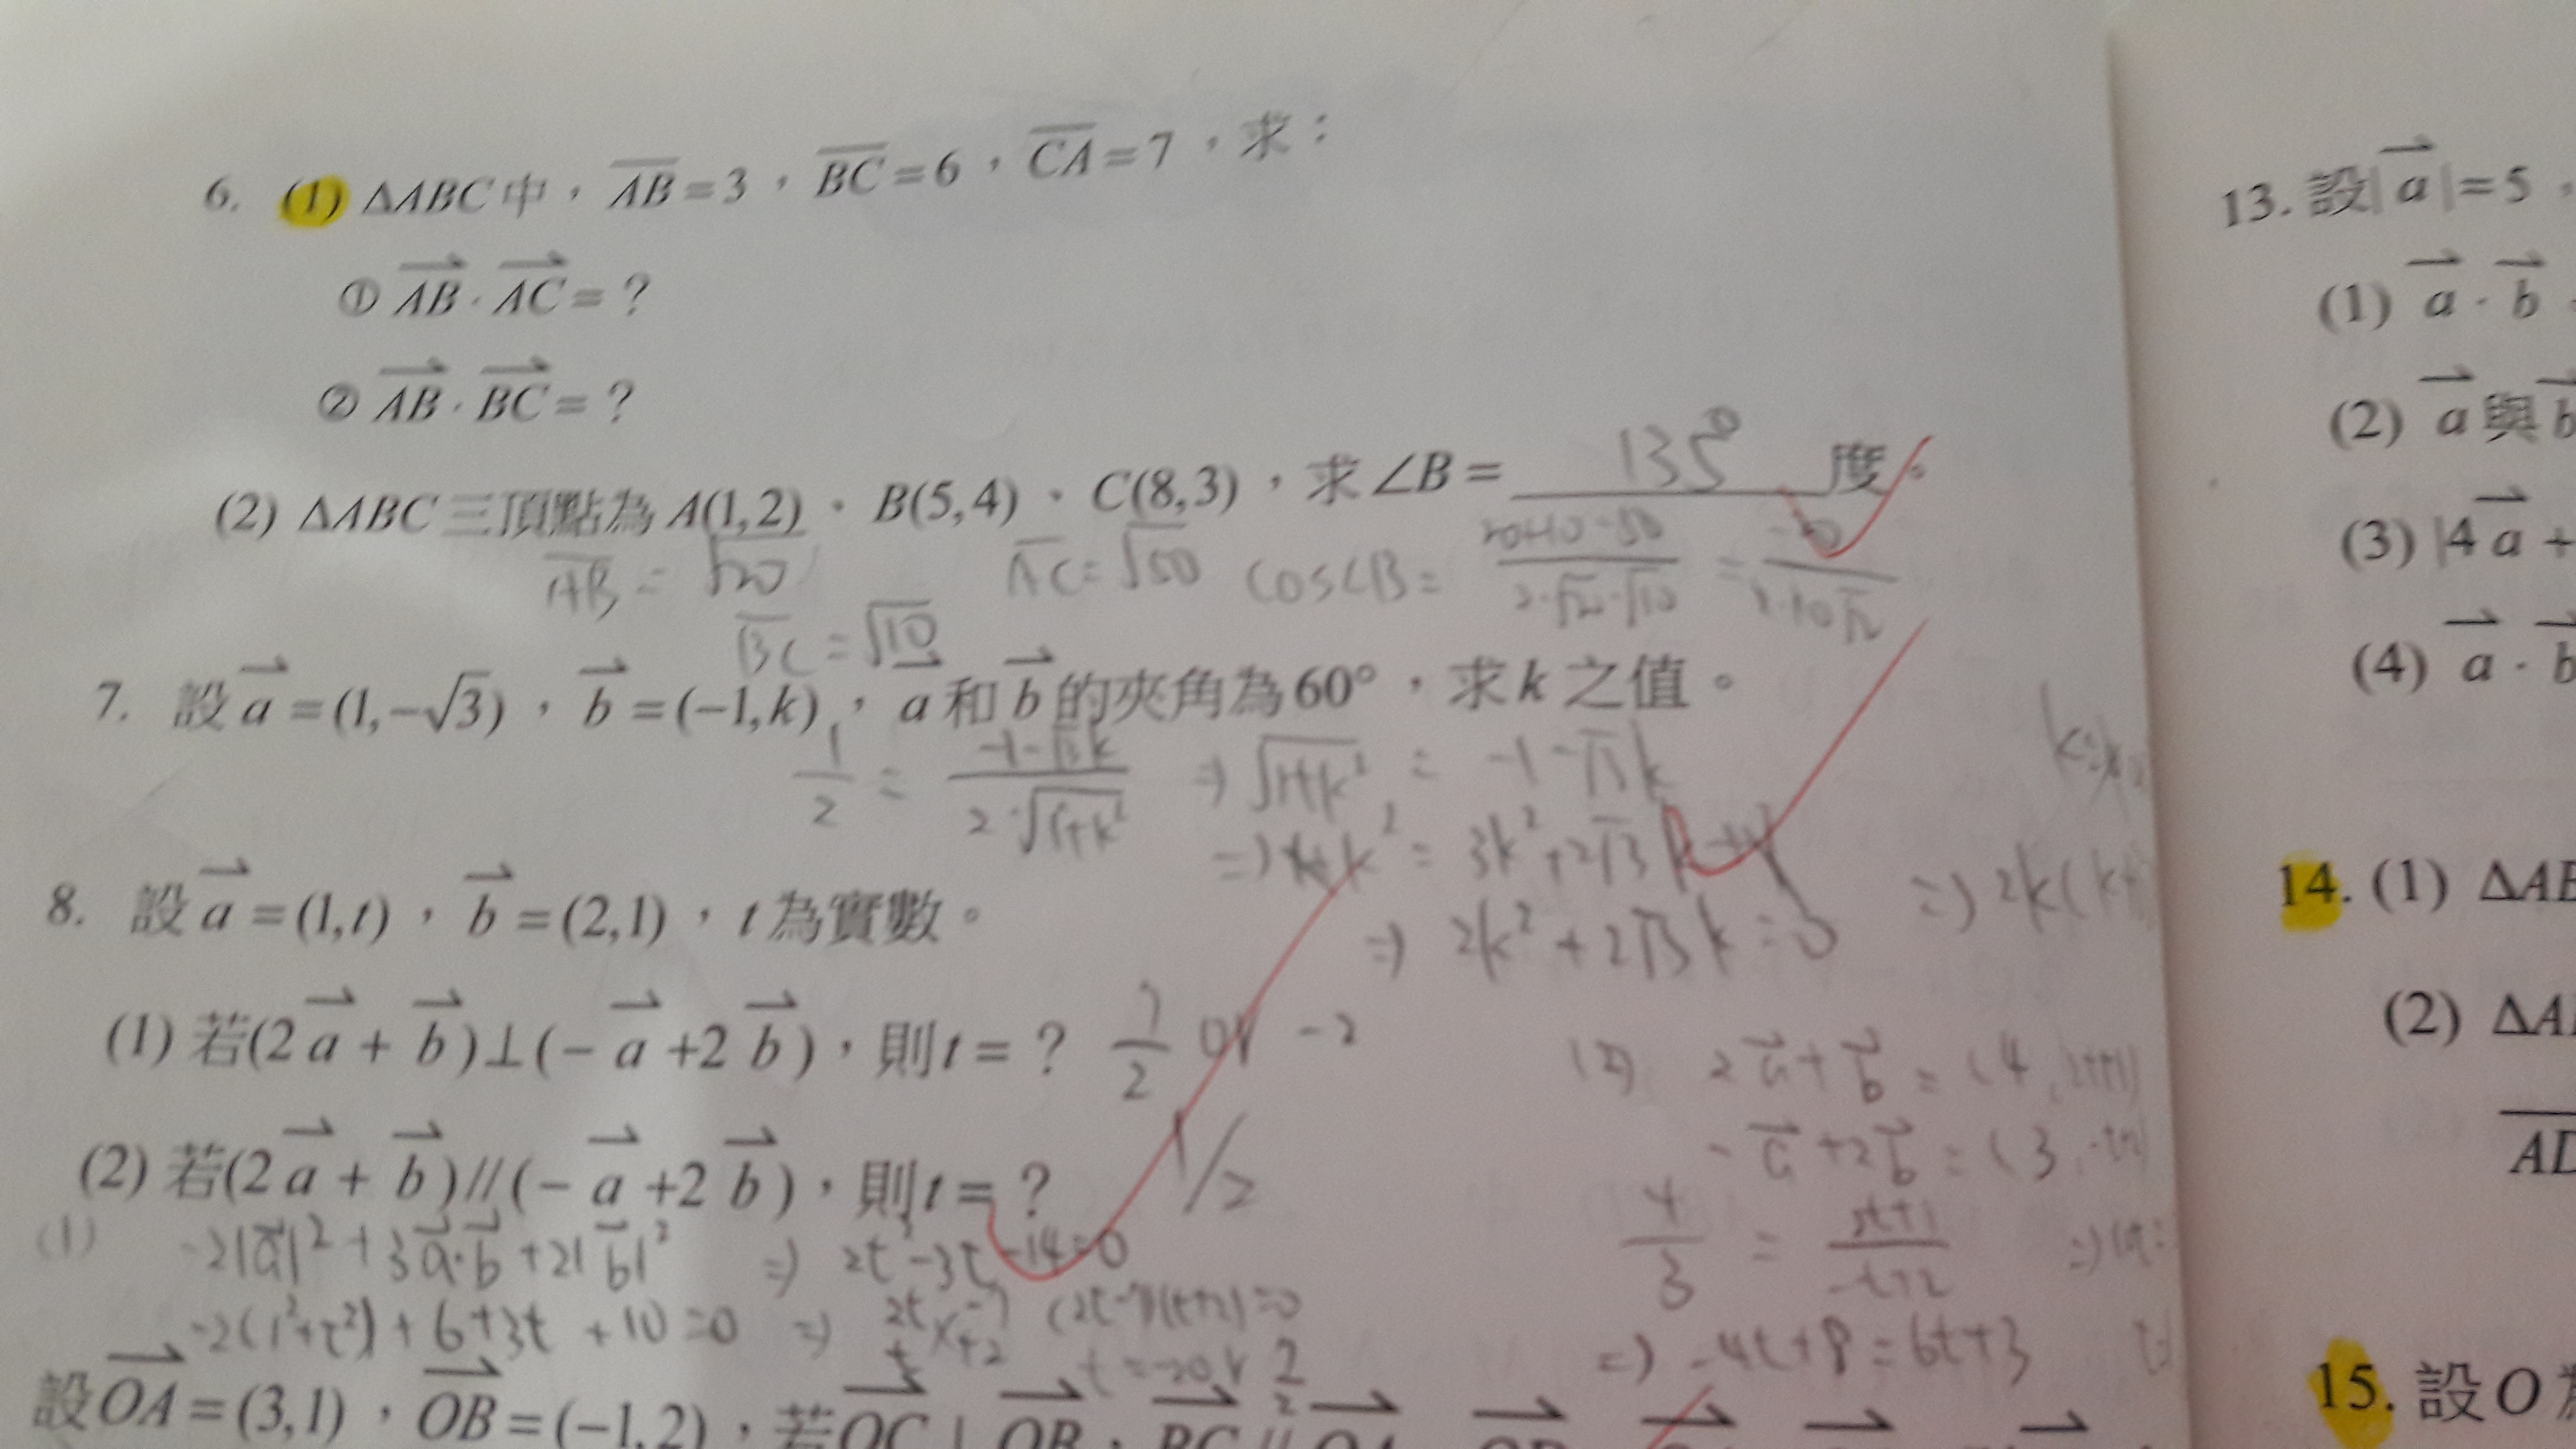 6. (1) ΔABC中，AB=3，BC=6，CA=7，求：
① AB · AC = ?
② AB · BC = ?
(2) ΔABC三頂點為A(1,2)、B(5,4)、C(8,3)，求∠B= 135° 度。
AB = √20 AC = √50 cos∠B = 20+10-50 / 2·√20·√10 =
BC = √10
7. 設a=(1,-√3)，b=(-1,k)，a和b的夾角為60°，求k之值。
1/2 = -1-√3k / 2·√1+k² ⇒ √1+k² = -1-√3k
⇒ 2k²+2√3k=0 ⇒ 2k(k+
8. 設a=(1,t)，b=(2,1)，t為實數。
(1) 若(2a+b)⊥(-a+2b)，則t=? 7/2 or -2
(2) 若(2a+b)//(-a+2b)，則t=? 1/2
(1) -2|a|²+3a·b+2|b|² ⇒ 2t²-3t-14=0
-2(1²+t²)+6+3t+10=0 ⇒ (2t-7)(t+2)=0
(2) 2a+b=(4,2t+1)
-a+2b=(3,-t+2)
4/3 = 2t+1 / -t+2
⇒ -4t+8=6t+3
設OA=(3,1)，OB=(-1,2)，若OC⊥OB，BC//OA
13. 設|a|=5，
(1) a · b
(2) a與b
(3) |4a+
(4) a · b
14. (1) ΔAB
(2) ΔA
AD
15. 設O為